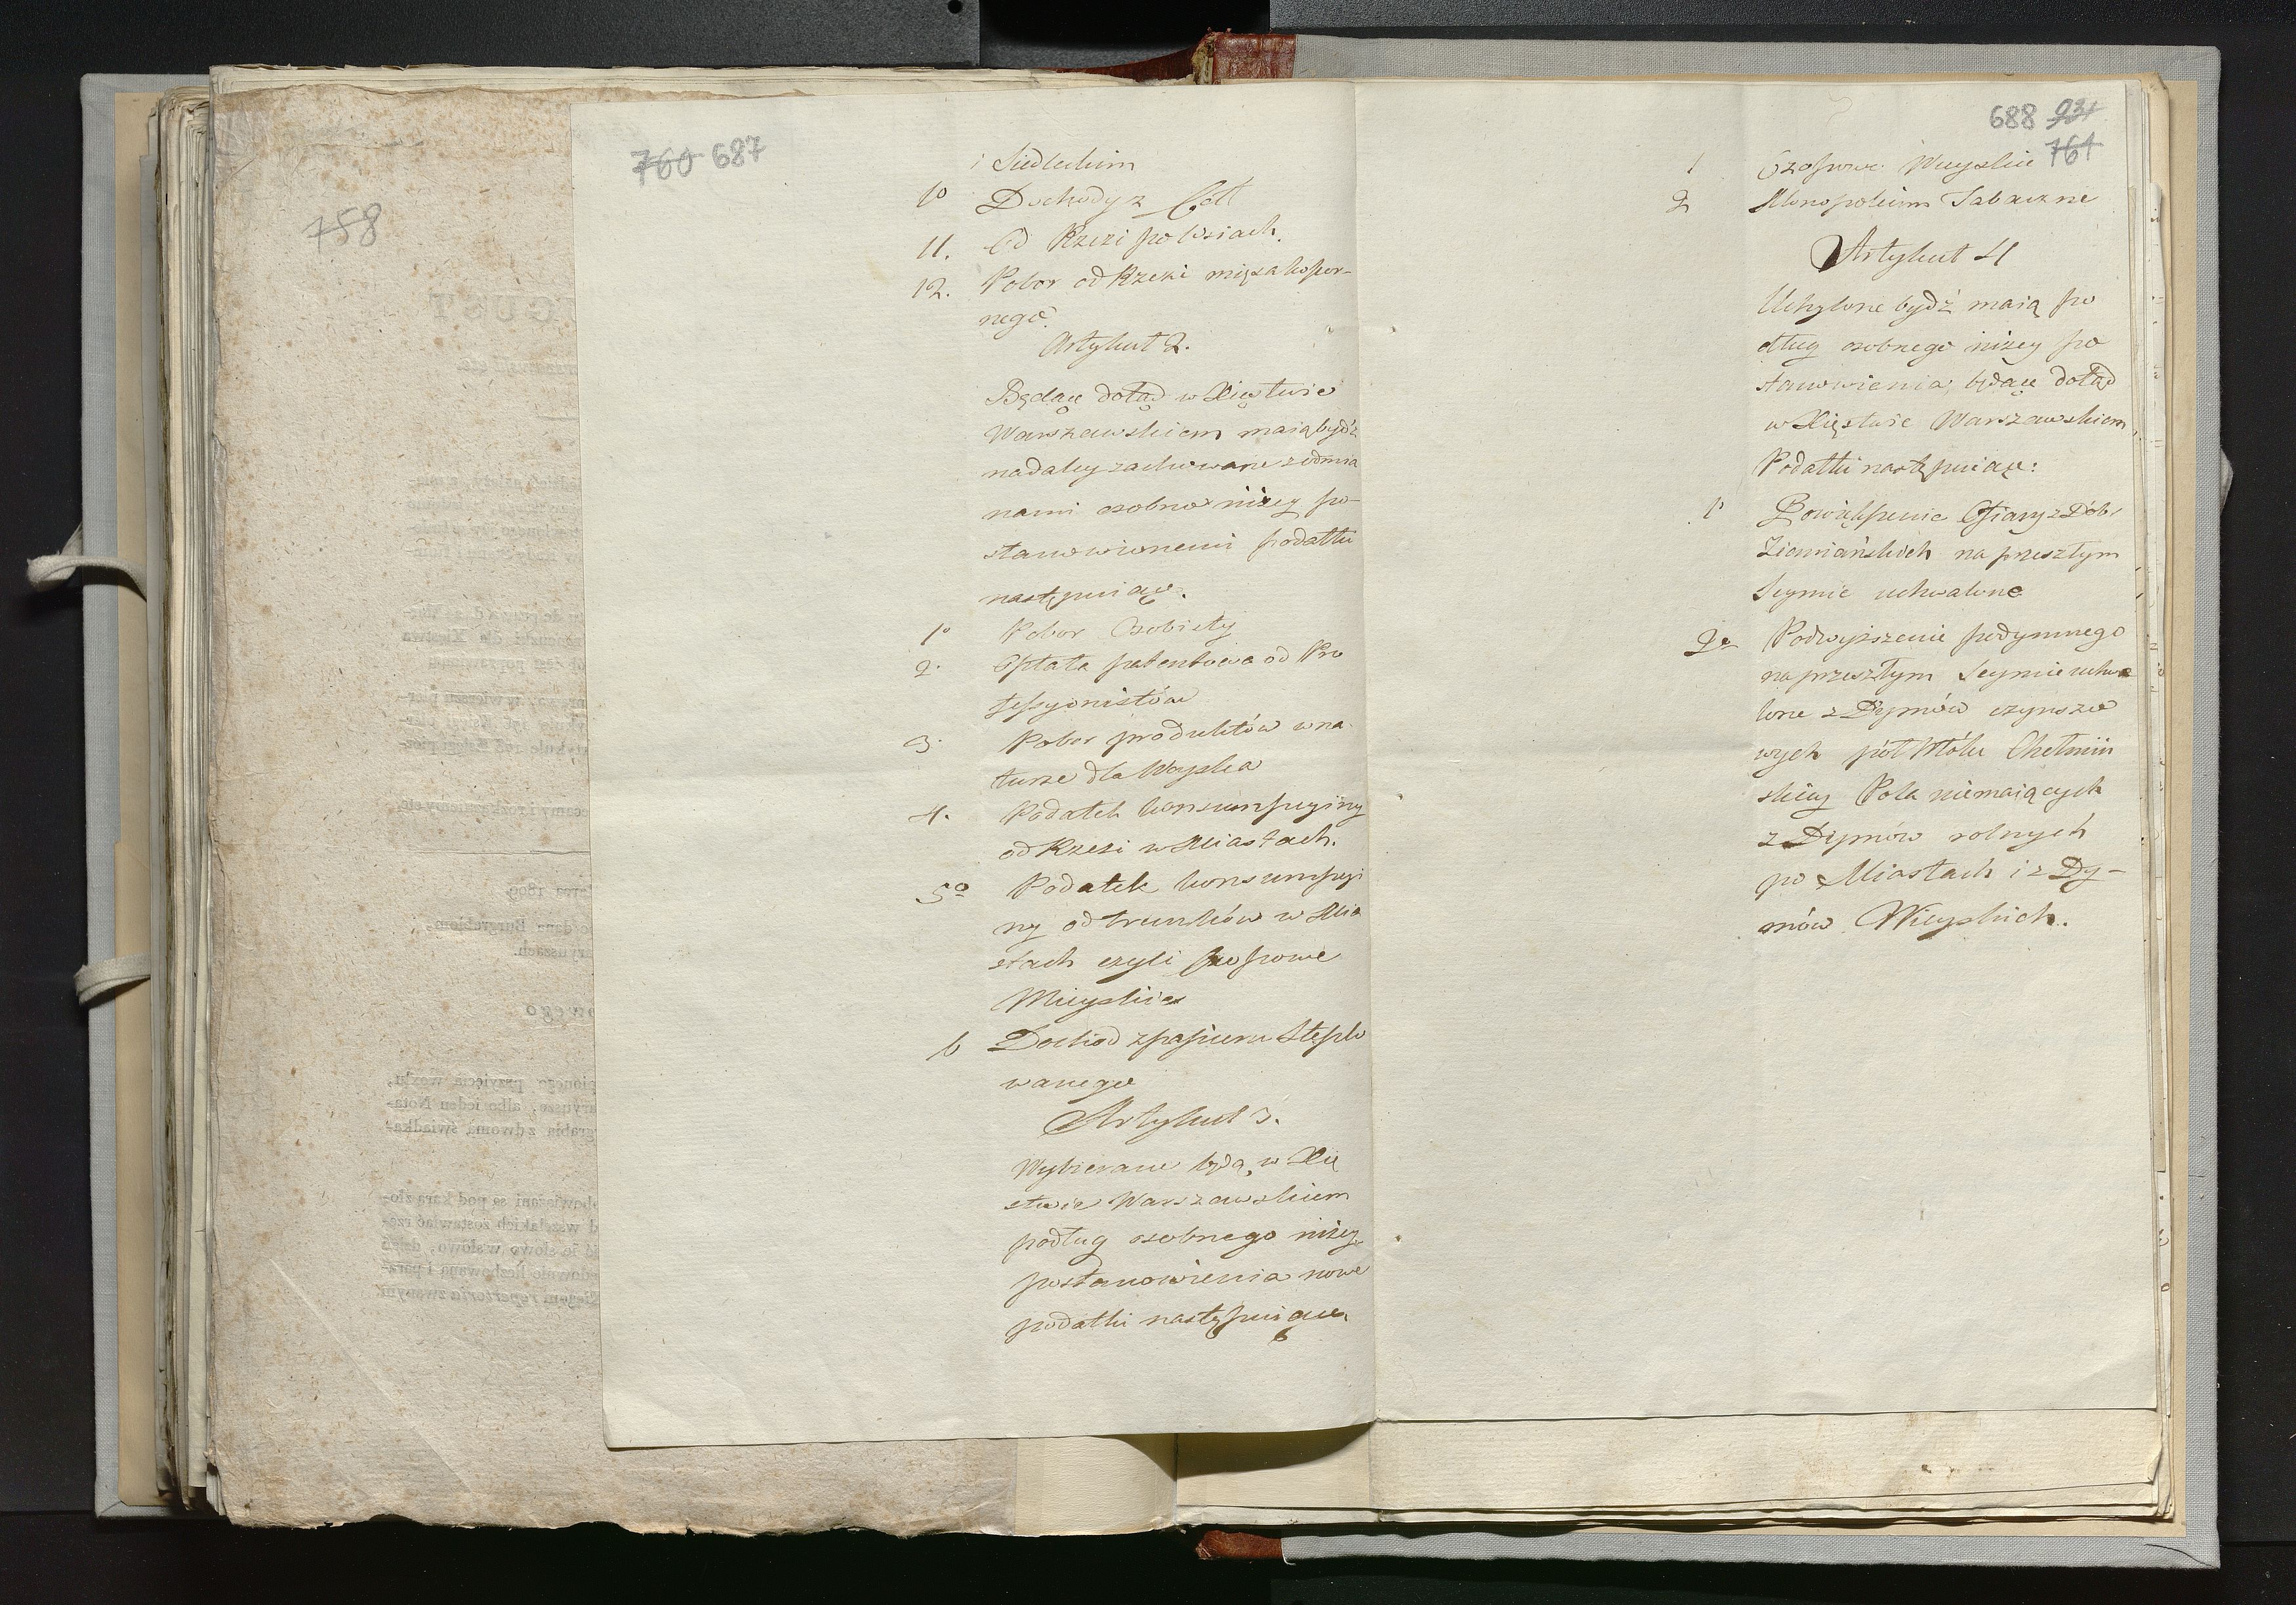 760 687
758
i Siedleckim
10 Dochody z Cell
11. Od Rzezi po Wsiach.
12. Pobor od Rzezi mięsa koszer-
nego.
Artykuł 2.
Będące dotąd w Xięstwie
Warszawskiem maią bydź
nadaley zachowane z odmia
nami osobno niżey po-
stanowionemi podatki
następuiące.
1o Pobor Osobisty
2. Opłata patentowa od Pro
fessyonistów
3. Pobor produktów w na
turze dla Woyska
4. Podatek konsumpcyiny
od Rzezi w Miastach.
5o Podatek konsumpcyi
ny od trunków w Mia
stach czyli czopowe
Mieyskie
6 Dochod z papieru Stęplo
wanego
Artykuł 3.
Wybierane będą w Xię
stwie Warszawskiem
podług osobnego niżey
postanowienia nowe
podatki następuiące
688 931
761
1 Czopowe Wieyskie
2 Monopolium Tabaczne
Artykuł 4
Uchylone bydź maią po
dług osobnego niżey po
stanowienia, będące dotąd
w Xięstwie Warszawskiem
Podatki następuiące:
1o Powiększenie Ofiary z Dóbr
Ziemiańskich na przeszłym
Seymie uchwalone
2o Podwyższenie podymnego
na przeszłym Seymie uchwa
lone z Dymów czynszo
wych pół Włóki Chełmiń
skiey Pola niemaiących
z Dymów rolnych
po Miastach i z Dy-
mów Wieyskich.